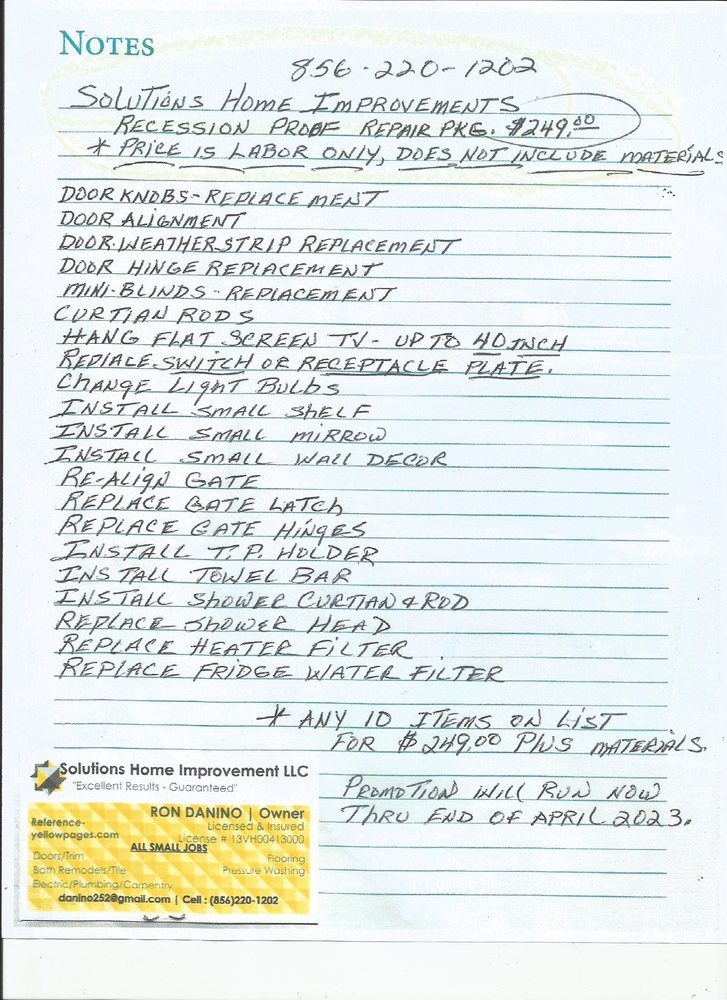 NOTES
856-220-1202
SOLUTIONS HOME IMPROVEMENTS
RECESSION PROOF REPAIR PKG. $249.00
* PRICE IS LABOR ONLY, DOES NOT INCLUDE MATERIALS
DOOR KNOBS - REPLACEMENT
DOOR ALIGNMENT
DOOR-WEATHERSTRIP REPLACEMENT
DOOR HINGE REPLACEMENT
MINI-BLINDS - REPLACEMENT
CURTIAN RODS
HANG FLAT SCREEN TV - UP TO 40 INCH
REPLACE SWITCH OR RECEPTACLE PLATE.
CHANGE LIGHT BULBS
INSTALL SMALL SHELF
INSTALL SMALL MIRROW
INSTALL SMALL WALL DECOR
RE-ALIGN GATE
REPLACE GATE LATCH
REPLACE GATE HINGES
INSTALL T.P. HOLDER
INSTALL TOWEL BAR
INSTALL SHOWER CURTIAN & ROD
REPLACE SHOWER HEAD
REPLACE HEATER FILTER
REPLACE FRIDGE WATER FILTER
* ANY 10 ITEMS ON LIST
FOR $249.00 PLUS MATERIALS.
PROMOTION WILL RUN NOW
THRU END OF APRIL 2023.
Solutions Home Improvement LLC
"Excellent Results - Guaranteed"
RON DANINO | Owner
Reference-
yellowpages.com
Licensed & Insured
License # 13VH00413000
ALL SMALL JOBS
Doors/Trim
Flooring
Bath Remodels/Tile
Pressure Washing
Electric/Plumbing/Carpentry
danino252@gmail.com | Cell : (856)220-1202